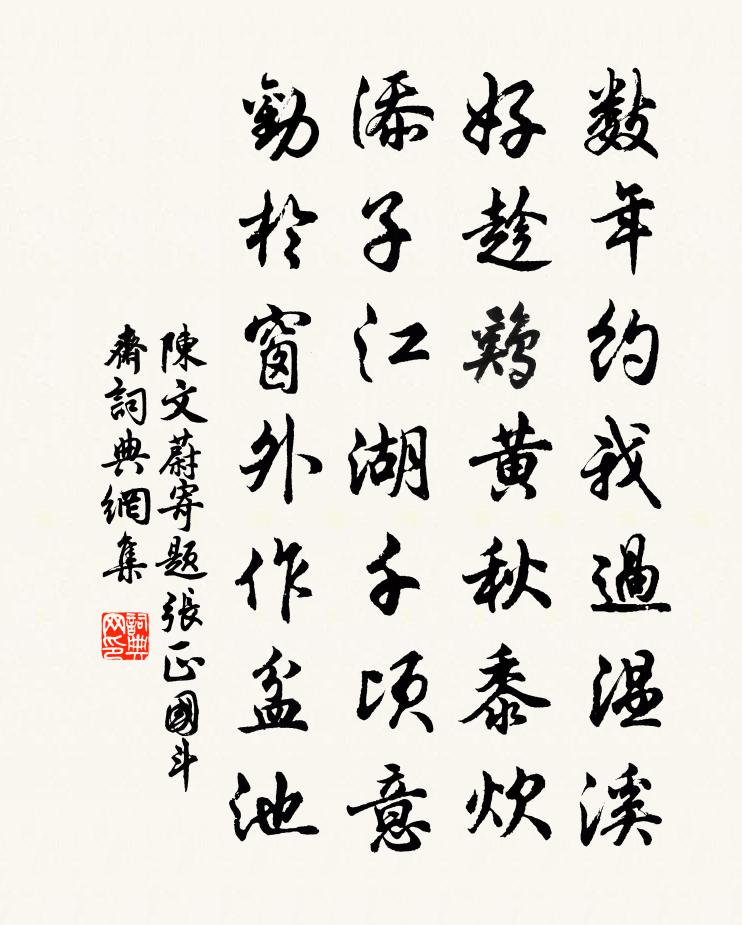 數年約我過溫溪
好趁鷄黃秋黍炊
添子江湖千頃意
勤於窗外作盆池
陳文蔚寄題張正國斗
齋詞典網集
詞典网印